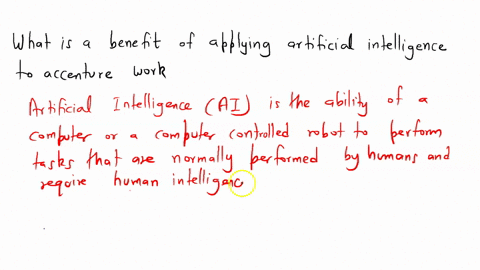 What is a benefit of applying artificial intelligence
to accenture work
Artificial Intelligence (AI) is the ability of a
computer or a computer controlled robot to perform
tasks that are normally performed by humans and
require human intelligenc